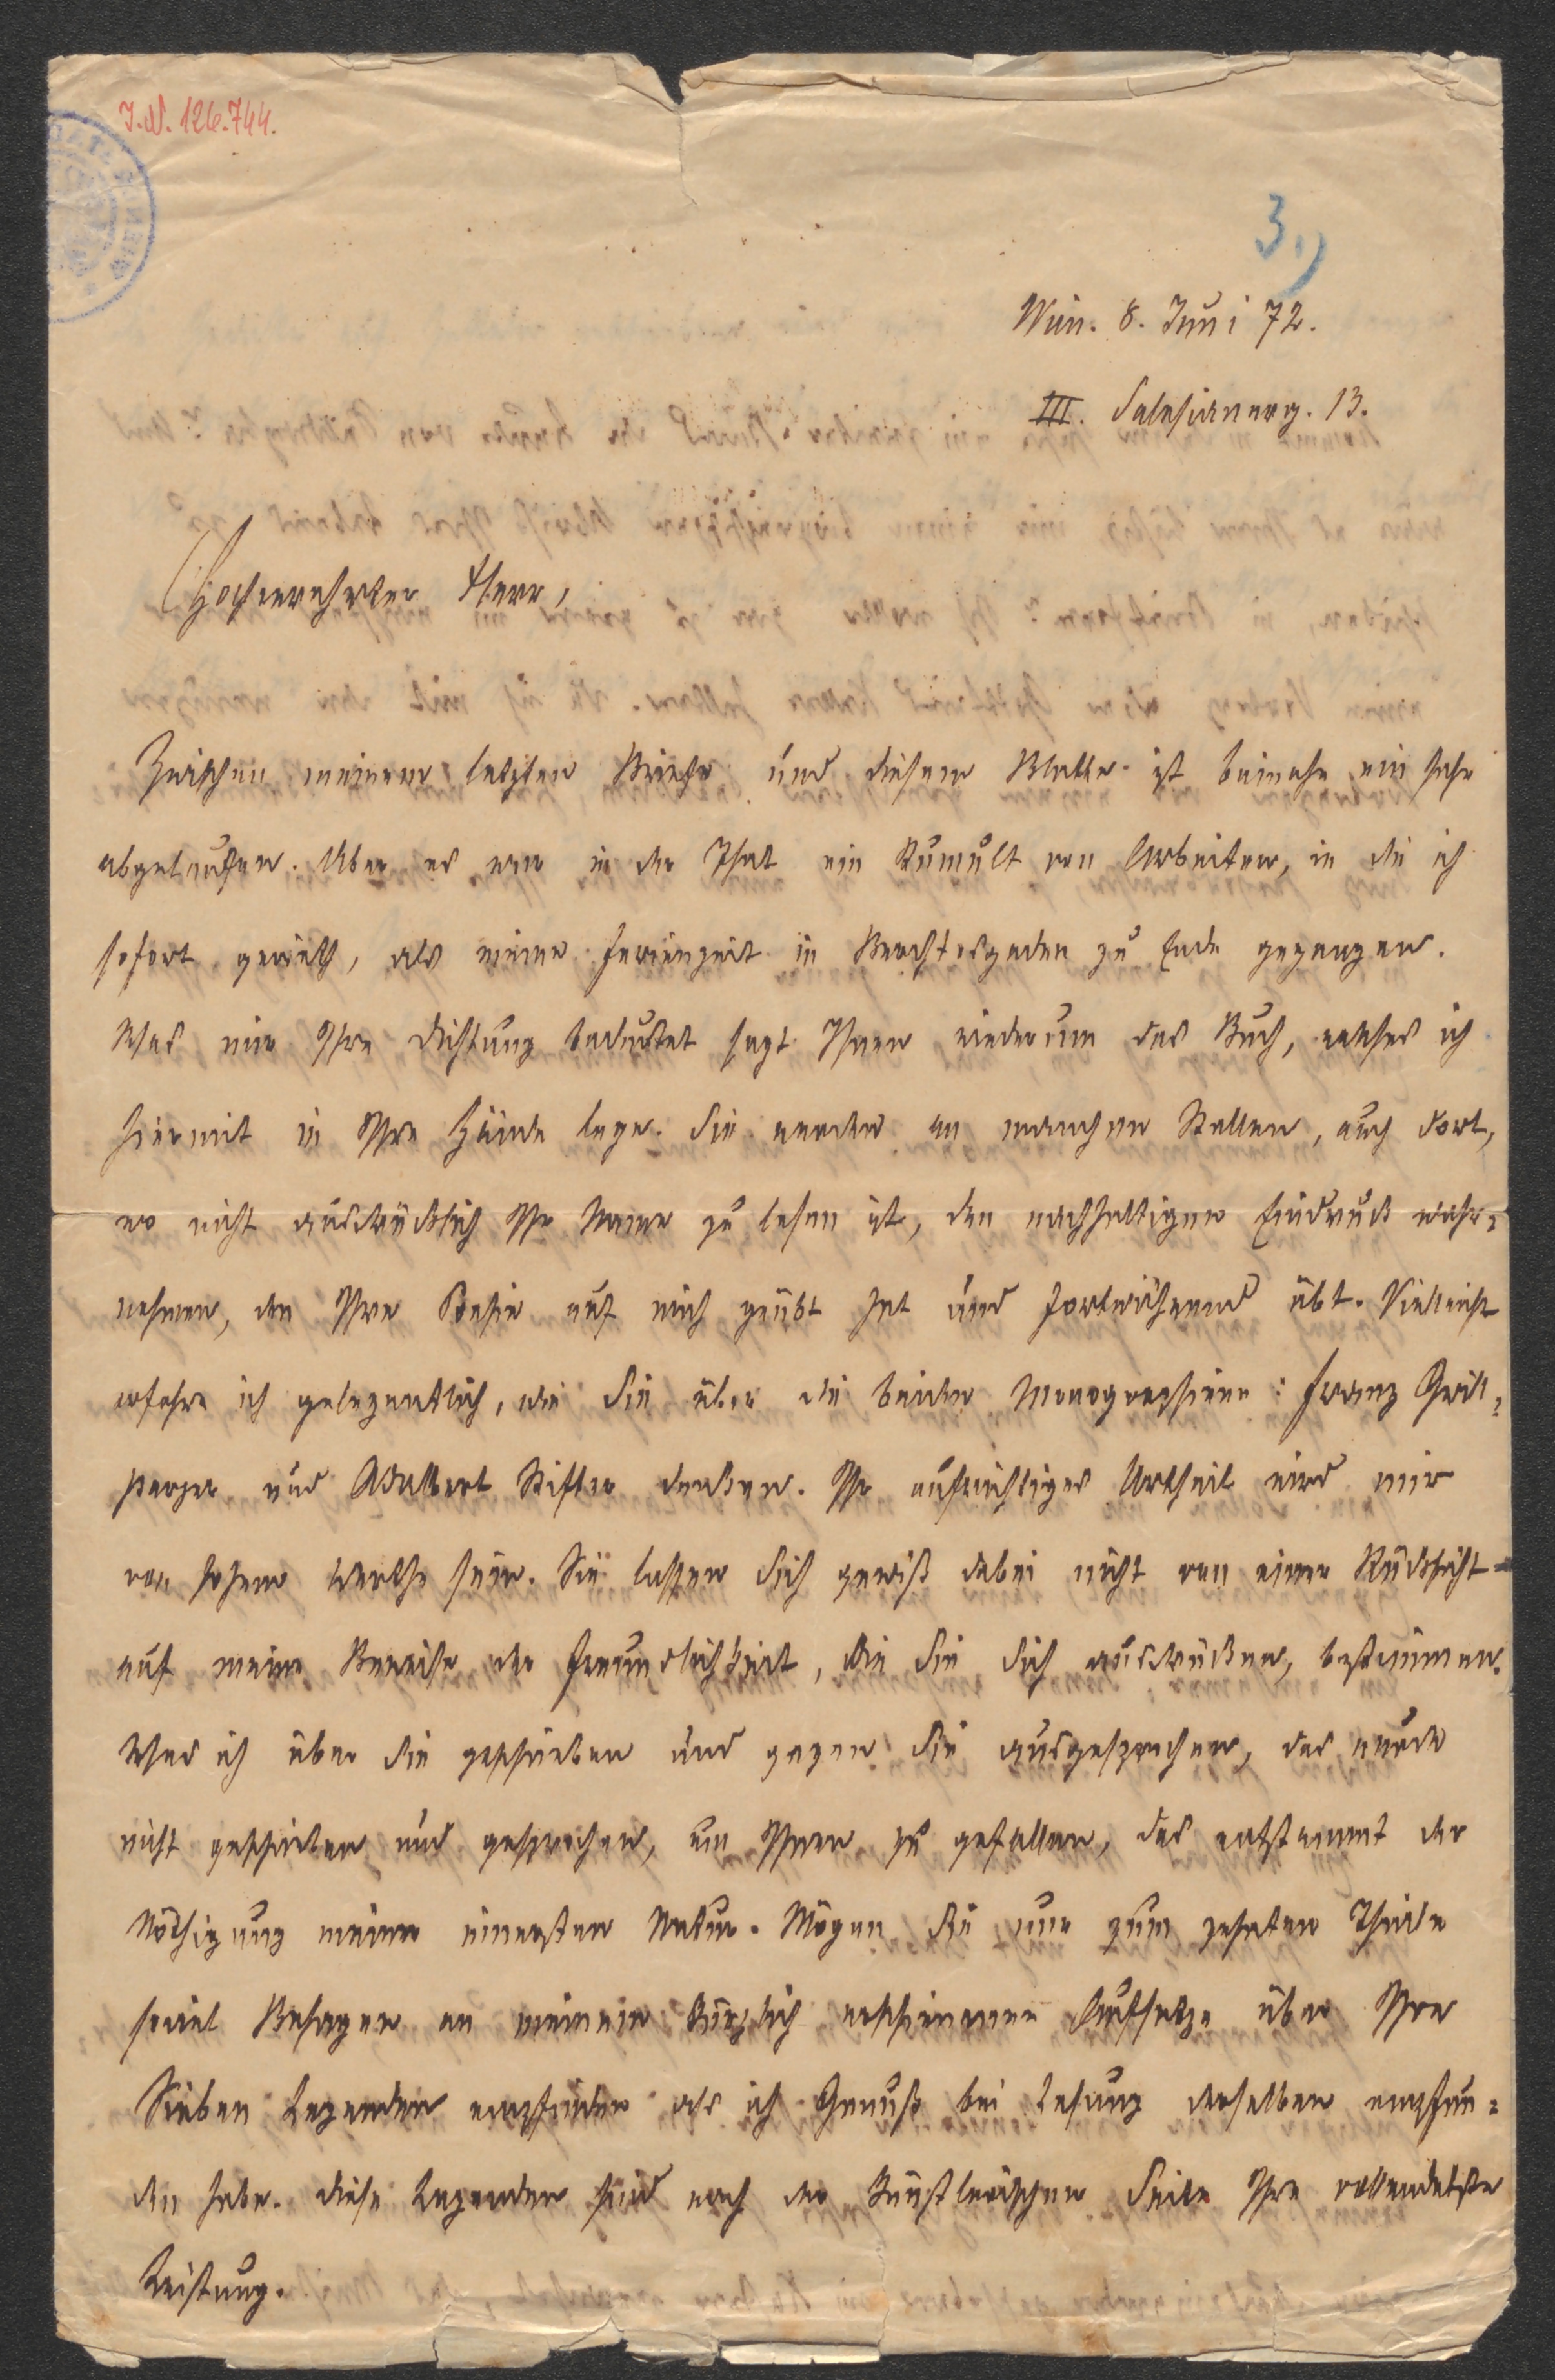 J.N. 126.744.
3.)
Wien. 8. Juni 72.
III. Salesianerg. 13.
Hochverehrter Herr,
Zwischen meinem letzten Briefe und diesem Blatte ist beinahe ein Jahr
abgelaufen. Aber es war in der That ein Tumult von Arbeiten, in die ich
sofort gerieth, als meine Ferienzeit in Berchtesgaden zu Ende gegangen.
Was mir Ihre Dichtung bedeutet sagt Ihnen wiederum das Buch, welches ich
hiermit in Ihre Hände lege. Sie werden an manchen Stellen, auch dort,
wo nicht ausdrücklich Ihr Name zu lesen ist, den nachhaltigen Eindruck wahr=
nehmen, den Ihre Poesie auf mich geübt hat und fortwährend übt. Vielleicht
erfahre ich gelegentlich, wie Sie über die beiden Monographieen: Franz Grill=
parzer und Adalbert Stifter denken. Ihr aufrichtiges Urtheil wird mir
von hohem Werthe sein. Sie lassen sich gewiß dabei nicht von einer Rücksicht
auf meine Beweise der Freundlichkeit, wie Sie sich ausdrücken, bestimmen.
Was ich über Sie geschrieben und gegen Sie ausgesprochen, das wurde
nicht geschrieben und gesprochen, um Ihnen zu gefallen, das entstammt der
Nöthigung meiner innersten Natur. Mögen Sie nur zum zehnten Theile
soviel Behagen an meinem kürzlich erschienenen Aufsatze über Ihre
Sieben Legenden empfinden als ich Genuß bei Lesung derselben empfun=
den habe. Diese Legenden sind nach der künstlerischen Seite Ihre vollendetste
Leistung.